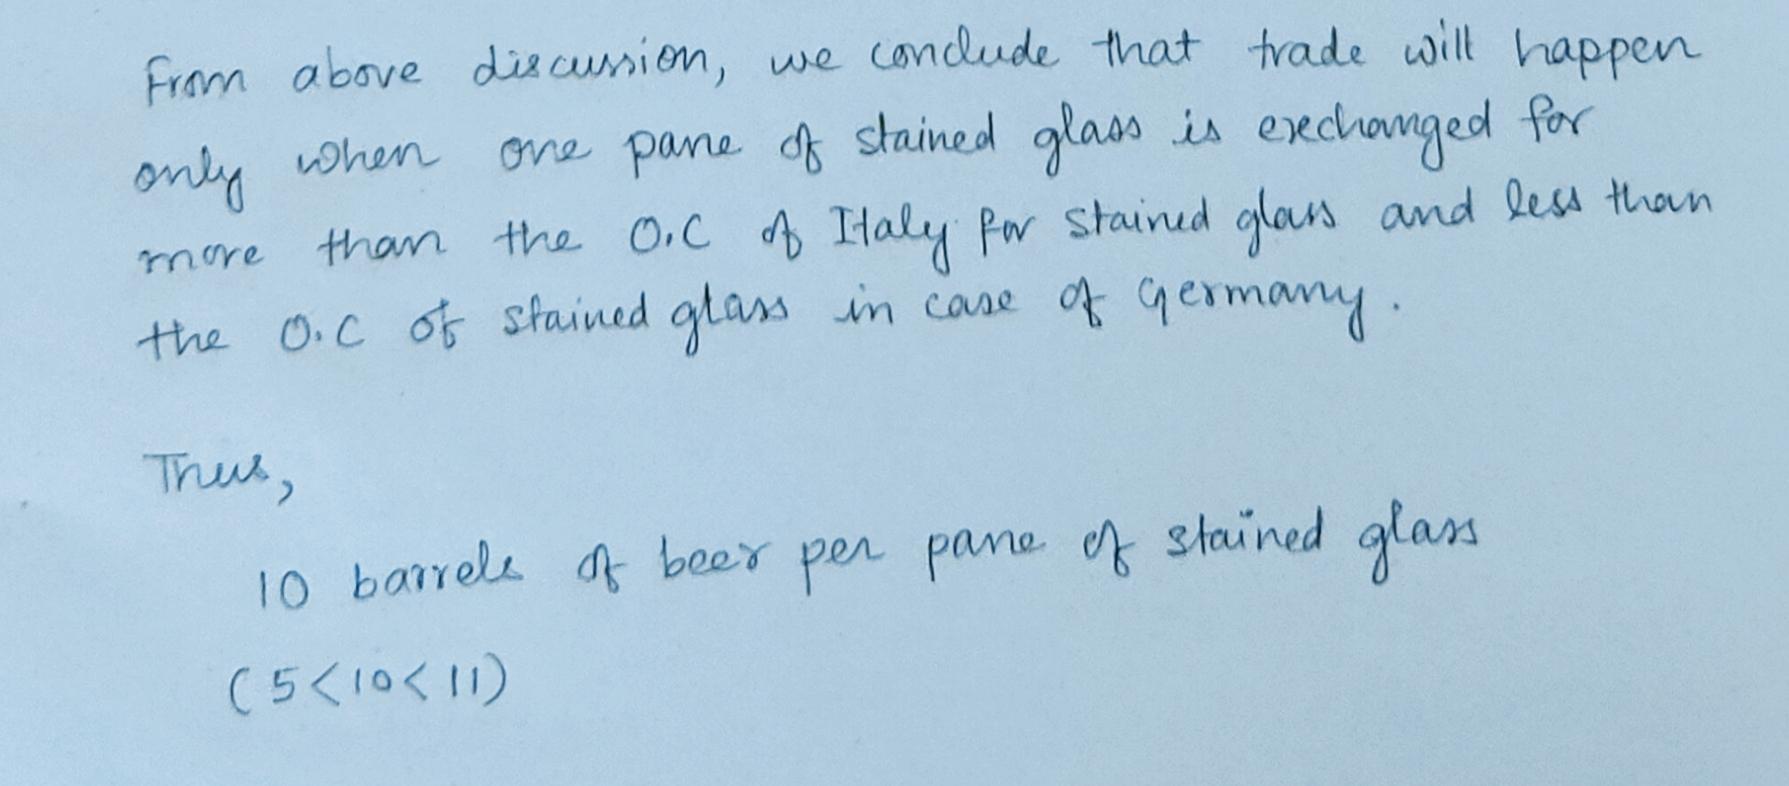 From above discussion, we conclude that trade will happen
only when one pane of stained glass is exechanged for
more than the O.C of Italy for stained glass and less than
the O.C of stained glass in case of Germany.
Thus,
10 barrels of beer per pane of stained glass
(5<10<11)